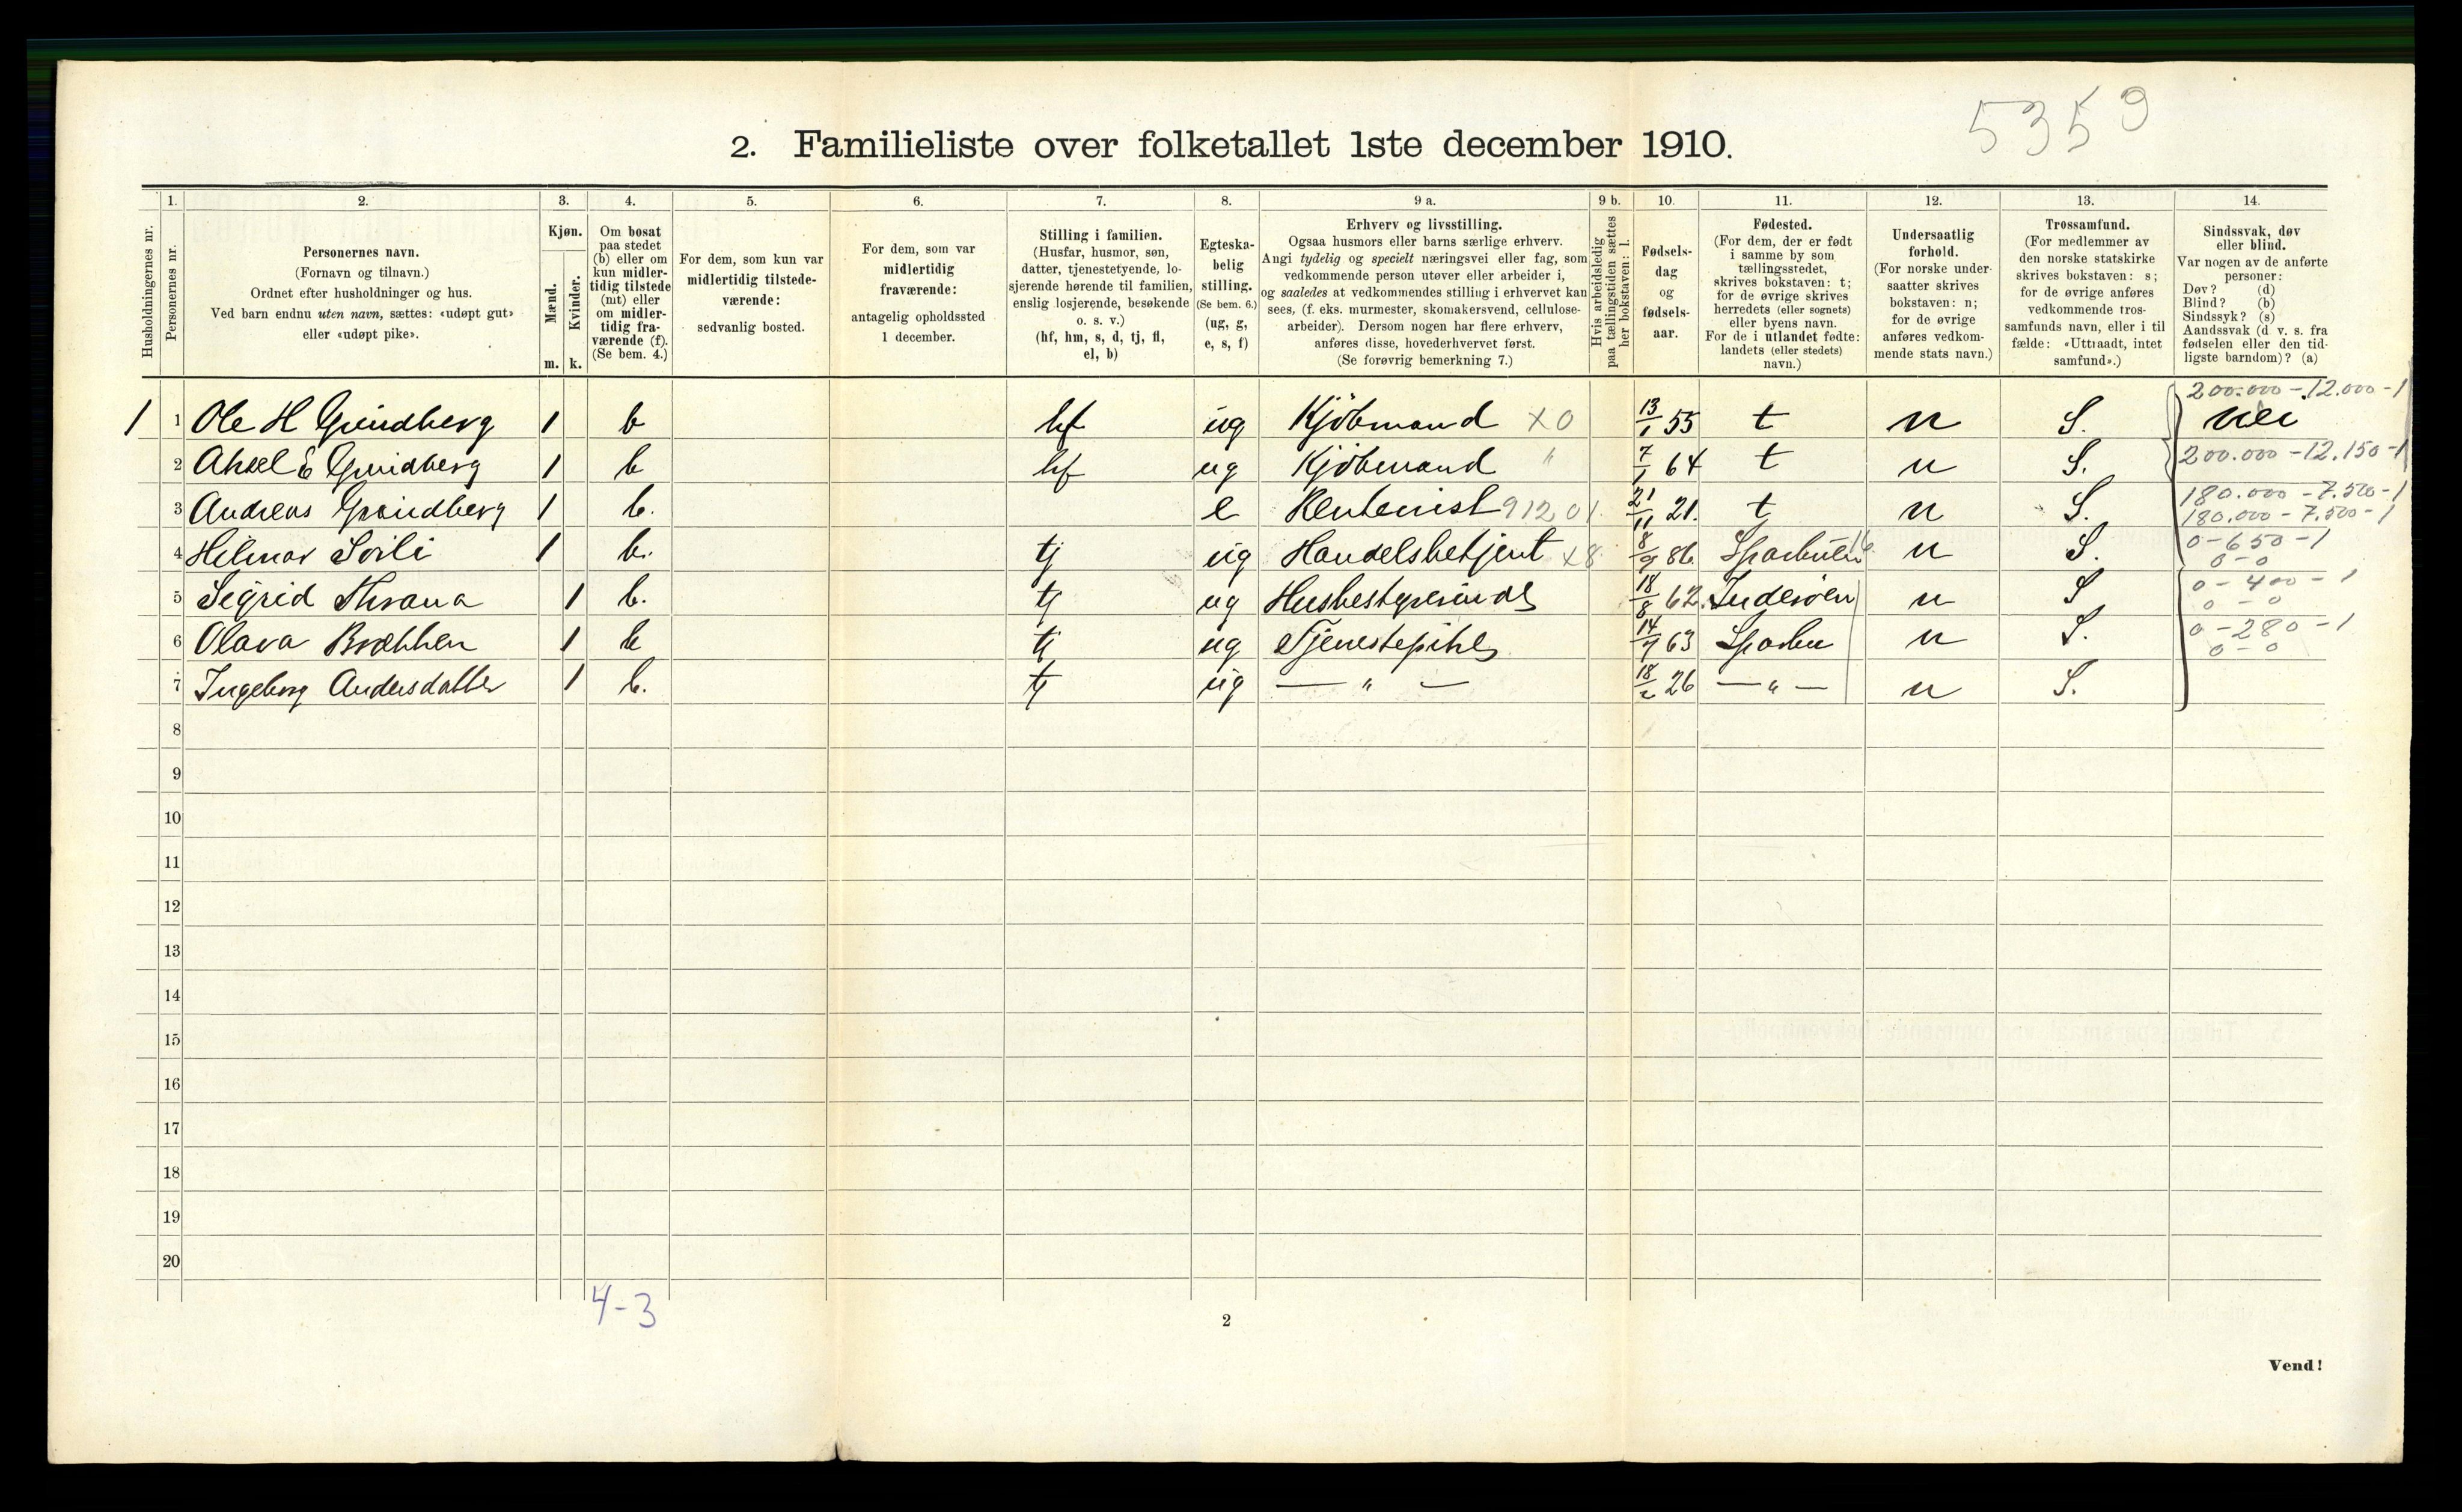 5359
2. Familieliste over folketallet 1ste december 1910.
1. 2. 3. 4. 5. 6. 7. 8. 9 a. 9 b. 10. 11. 12. 13. 14.
Husholdningernes nr.
Personernes nr.
Personernes navn.
(Fornavn og tilnavn.)
Ordnet efter husholdninger og hus.
Ved barn endnu uten navn, sættes: «udøpt gut»
eller «udøpt pike».
Kjøn.
Mænd.
Kvinder.
m. k.
Om bosat
paa stedet
(b) eller om
kun midler-
tidig tilstede
(mt) eller
om midler-
tidig fra-
værende (f).
(Se bem. 4.)
For dem, som kun var
midlertidig tilstede-
værende:
sedvanlig bosted.
For dem, som var
midlertidig
fraværende:
antagelig opholdssted
1 december.
Stilling i familien.
(Husfar, husmor, søn,
datter, tjenestetyende, lo-
sjerende hørende til familien,
enslig losjerende, besøkende
o. s. v.)
(hf, hm, s, d, tj, fl,
el, b)
Egteska-
belig
stilling.
(Se bem. 6.)
(ug, g,
e, s, f)
Erhverv og livsstilling.
Ogsaa husmors eller barns særlige erhverv.
Angi tydelig og specielt næringsvei eller fag, som
vedkommende person utøver eller arbeider i,
og saaledes at vedkommendes stilling i erhvervet kan
sees, (f. eks. murmester, skomakersvend, cellulose-
arbeider). Dersom nogen har flere erhverv,
anføres disse, hovederhvervet først.
(Se forøvrig bemerkning 7.)
Hvis arbeidsledig
paa tællingstiden sættes
her bokstaven: l.
Fødsels-
dag
og
fødsels-
aar.
Fødested.
(For dem, der er født
i samme by som
tællingsstedet,
skrives bokstaven: t;
for de øvrige skrives
herredets (eller sognets)
eller byens navn.
For de i utlandet fødte:
landets (eller stedets)
navn.)
Undersaatlig
forhold.
(For norske under-
saatter skrives
bokstaven: n;
for de øvrige
anføres vedkom-
mende stats navn.)
Trossamfund.
(For medlemmer av
den norske statskirke
skrives bokstaven: s;
for de øvrige anføres
vedkommende tros-
samfunds navn, eller i til
fælde: «Uttraadt, intet
samfund».)
Sindssvak, døv
eller blind.
Var nogen av de anførte
personer:
Døv? (d)
Blind? (b)
Sindssyk? (s)
Aandssvak (d v. s. fra
fødselen eller den tid-
ligste barndom)? (a)
200.000 - 12.000 - 1
1 1 Ole H Grindberg 1 b hf ug Kjöbmand X0 13/1 55 t n S. nei
2 Aksel E Grindberg 1 b hf ug Kjöbmand " 7/1 64 t n S. 200.000 - 12.150 - 1
180.000 - 7.500 - 1
3 Andreas Grindberg 1 b. e Rentenist 91201. 21/11 21. t n S. 180.000 - 7.500 - 1
4 Hilmar 1 b. tj ug Handelsbetjent X8 8/9 86 n S. 0 - 650 - 1
0 - 0
5 Sigrid 1 b. tj ug Husbestyrerinde 18/8 62. Inderöen n S 0 - 400 - 1
0 - 0
6 Olava 1 b tj ug Tjenestepike 14/9 63 Sparbu n S. 0 - 280 - 1
0 - 0
7 Ingeborg Andersdatter 1 b. tj ug — " — 18/2 26 — " — n S.
8
9
10
11
12
13
14
15
16
17
18
19
20
4-3
2
Vend!